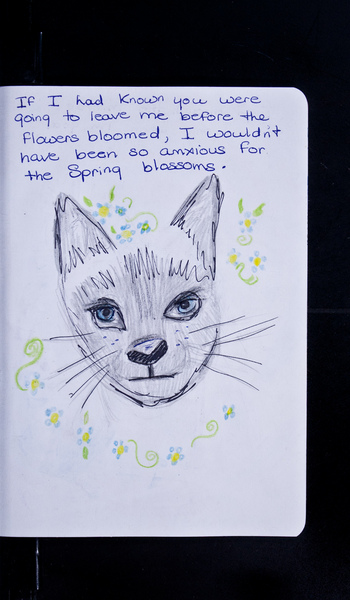 If I had known you were
going to leave me before the
flowers bloomed, I wouldn't
have been so anxious for
the Spring blossoms.